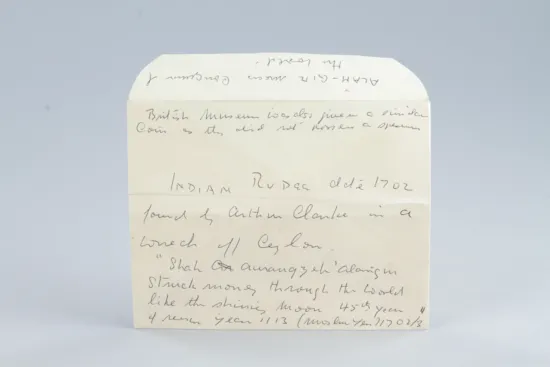 ALAM-GIR means Conqueror of
the World.
British Museum was also given a similar
Coin as they did not possess a specimen
INDIAN RUPEE date 1702
found by Arthur Clarke in a
wreck off Ceylon.
"Shah Aurangzeb Alamgir
Struck money through the World
like the shining moon 45th year"
of reign year 1113 (moslem year) 1702/3